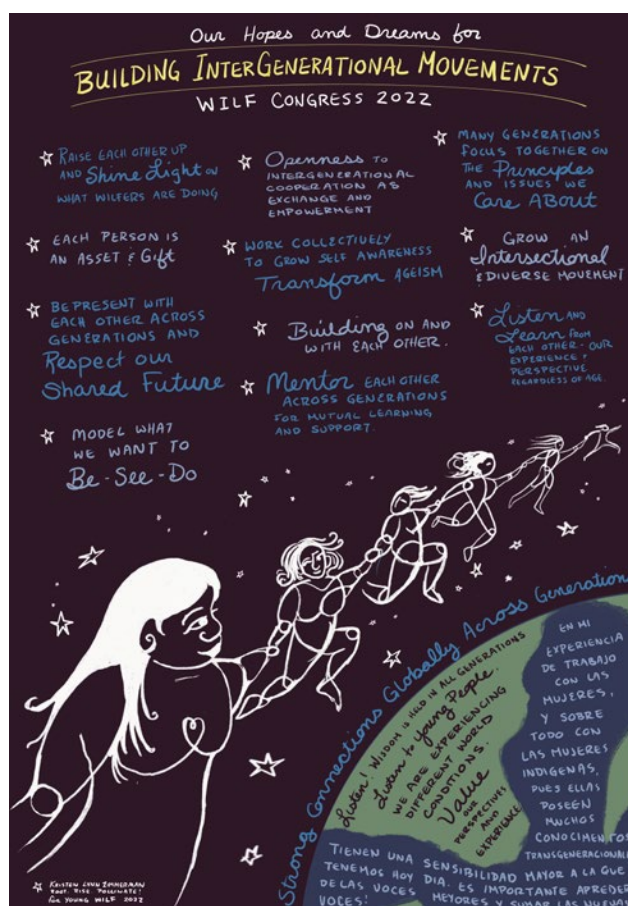 Our Hopes and Dreams for
BUILDING INTERGENERATIONAL MOVEMENTS
WILF CONGRESS 2022
RAISE EACH OTHER UP
AND Shine Light ON
WHAT WILFERS ARE DOING
EACH PERSON IS
AN ASSET & Gift
BE PRESENT WITH
EACH OTHER ACROSS
GENERATIONS AND
Respect our
Shared Future
MODEL WHAT
WE WANT TO
Be-See-Do
Openness TO
INTERGENERATIONAL
COOPERATION AS
EXCHANGE AND
EMPOWERMENT
WORK COLLECTIVELY
TO GROW SELF AWARENESS
Transform AGEISM
Building ON AND
WITH EACH OTHER.
Mentor EACH OTHER
ACROSS GENERATIONS
FOR MUTUAL LEARNING
AND SUPPORT.
MANY GENERATIONS
FOCUS TOGETHER ON
THE Principles
AND ISSUES WE
Care About
GROW AN
Intersectional
& DIVERSE MOVEMENT
Listen AND
Learn FROM
EACH OTHER - OUR
EXPERIENCE &
PERSPECTIVE
REGARDLESS OF AGE.
Strong Connections Globally Across Generation
Listen! WISDOM IS HELD IN ALL GENERATIONS
Listen to Young People.
WE ARE EXPERIENCING
DIFFERENT WORLD
CONDITIONS.
Value
OUR
PERSPECTIVES
AND
EXPERIENCE
EN MI
EXPERIENCIA
DE TRABAJO
CON LAS
MUJERES,
Y SOBRE
TODO CON
LAS MUJERES
INDIGENAS,
PUES ELLAS
POSEEN
MUCHOS
CONOCIMENTOS
TRANSGENERACIONAL
TIENEN UNA SENSIBILIDAD MAYOR A LA QUE
TENEMOS HOY DIA. ES IMPORTANTE APREDER
DE LAS VOCES MEYORES Y SUMAR LAS NUEVAS
VOCES!
KRISTEN LYNN ZIMMERMAN
ROOT. RISE. POLLINATE!
for YOUNG WILF 2022